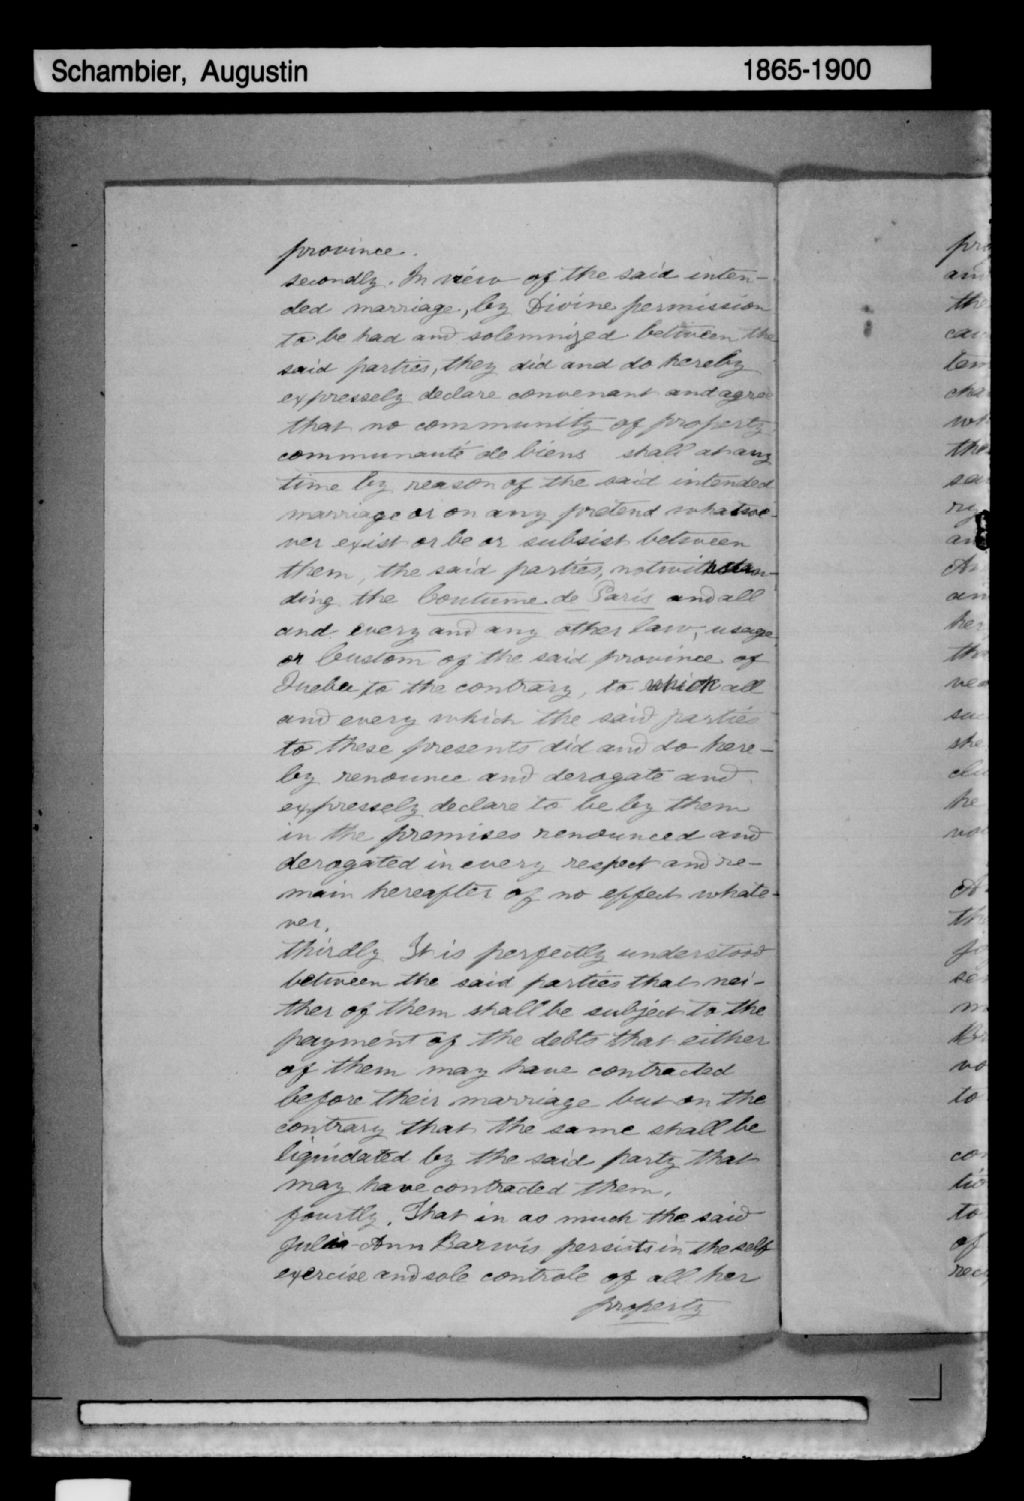 Schambier, Augustin 1865-1900
province.
secondly. In view of the said inten-
ded marriage, by Divine permission
to be had and solemnized between the
said parties, they did and do hereby
expressely declare convenant and agree
that no community of property
communauté de biens shall at any
time by reason of the said intended
marriage or on any pretend whatsoe-
ver exist or be or subsist between
them, the said parties, notwithstan-
ding the Coutume de Paris and all
and every and any other law, usage
or Custom of the said province of
Quebec, to the contrary, to which all
and every which the said parties
to these presents did and do here-
by renounce and derogate and
expressely declare to be by them
in the premises renounced and
derogated in every respect and re-
main hereafter of no effect whate-
ver.
thirdly It is perfectly understood
between the said parties that nei-
ther of them shall be subject to the
payment of the debts that either
of them may have contracted
before their marriage but on the
contrary that the same shall be
liquidated by the said party that
may have contracted them.
fourtly. That in as much the said
Julia-Ann Barwis persists in the self
exercise and sole controle of all her
property